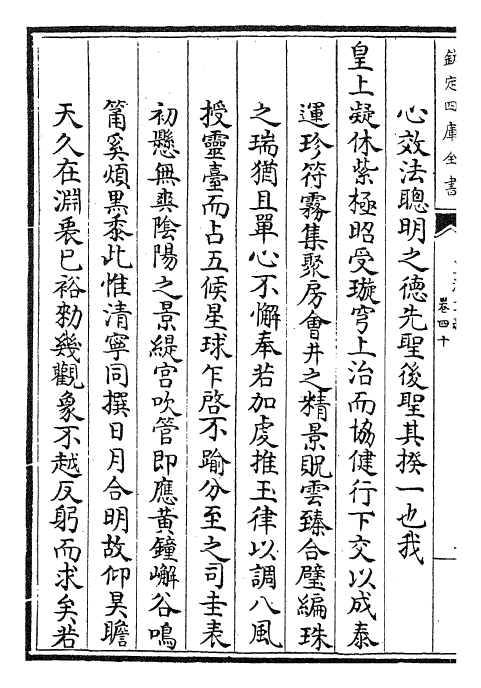 欽定四庫全書
卷四十
心效法聰明之德先聖後聖其揆一也我
皇上凝休紫極昭受璇穹上治而協健行下交以成泰
運珍符霧集聚房會井之精景貺雲臻合璧編珠
之瑞猶且單心不懈奉若加虔推玉律以調八風
授靈臺而占五候星球乍啓不踰分至之司圭表
初懸無爽陰陽之景緹宮吹管即應黃鐘嶰谷鳴
筩奚煩黑黍此惟清寧同撰日月合明故仰昊瞻
天久在淵衷已裕勑幾觀象不越反躬而求矣若